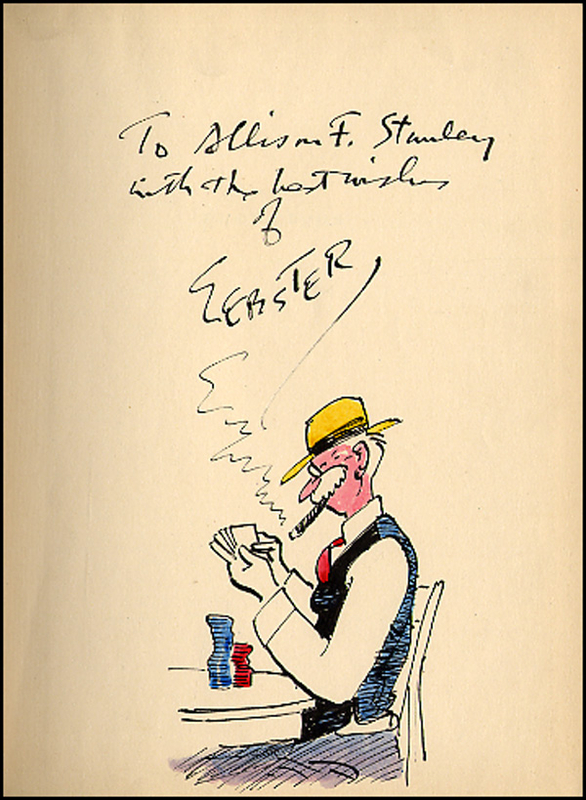 To Allison F. Stanley
with the best wishes
of
WEBSTER